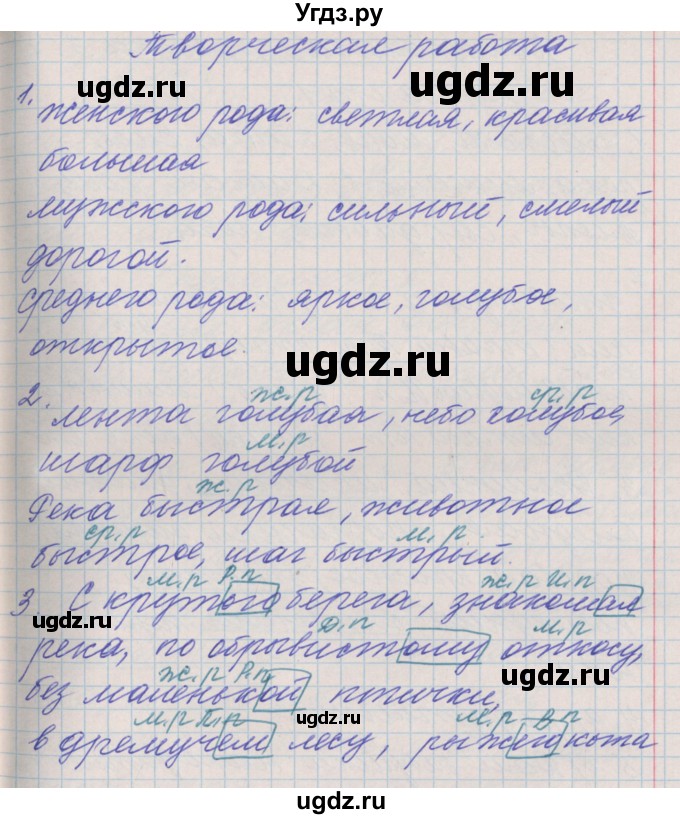 Угдз.ру
Творческая работа
ugdz.ru ugdz.ru
1. женского рода: светлая, красивая
большая
мужского рода: сильный, смелый
дорогой.
ugdz.ru
среднего рода: яркое, голубое,
открытое.
ugdz.ru
ж.р ср.р
2. лента голубая, небо голубое,
м.р
шарф голубой
ж.р
Река быстрая, животное
ср.р м.р.
быстрое, шаг быстрый.
м.р Р.п ж.р И.п
3. С крутого берега, знакомая
ugdz.ru Д.п м.р
река, по обрывистому откосу,
ж.р Р.п ugdz.ru
без маленькой птички,
м.р П.п м.р В.р
в дремучем лесу, рыжего кота
ugdz.ru ugdz.ru
ugdz.ru